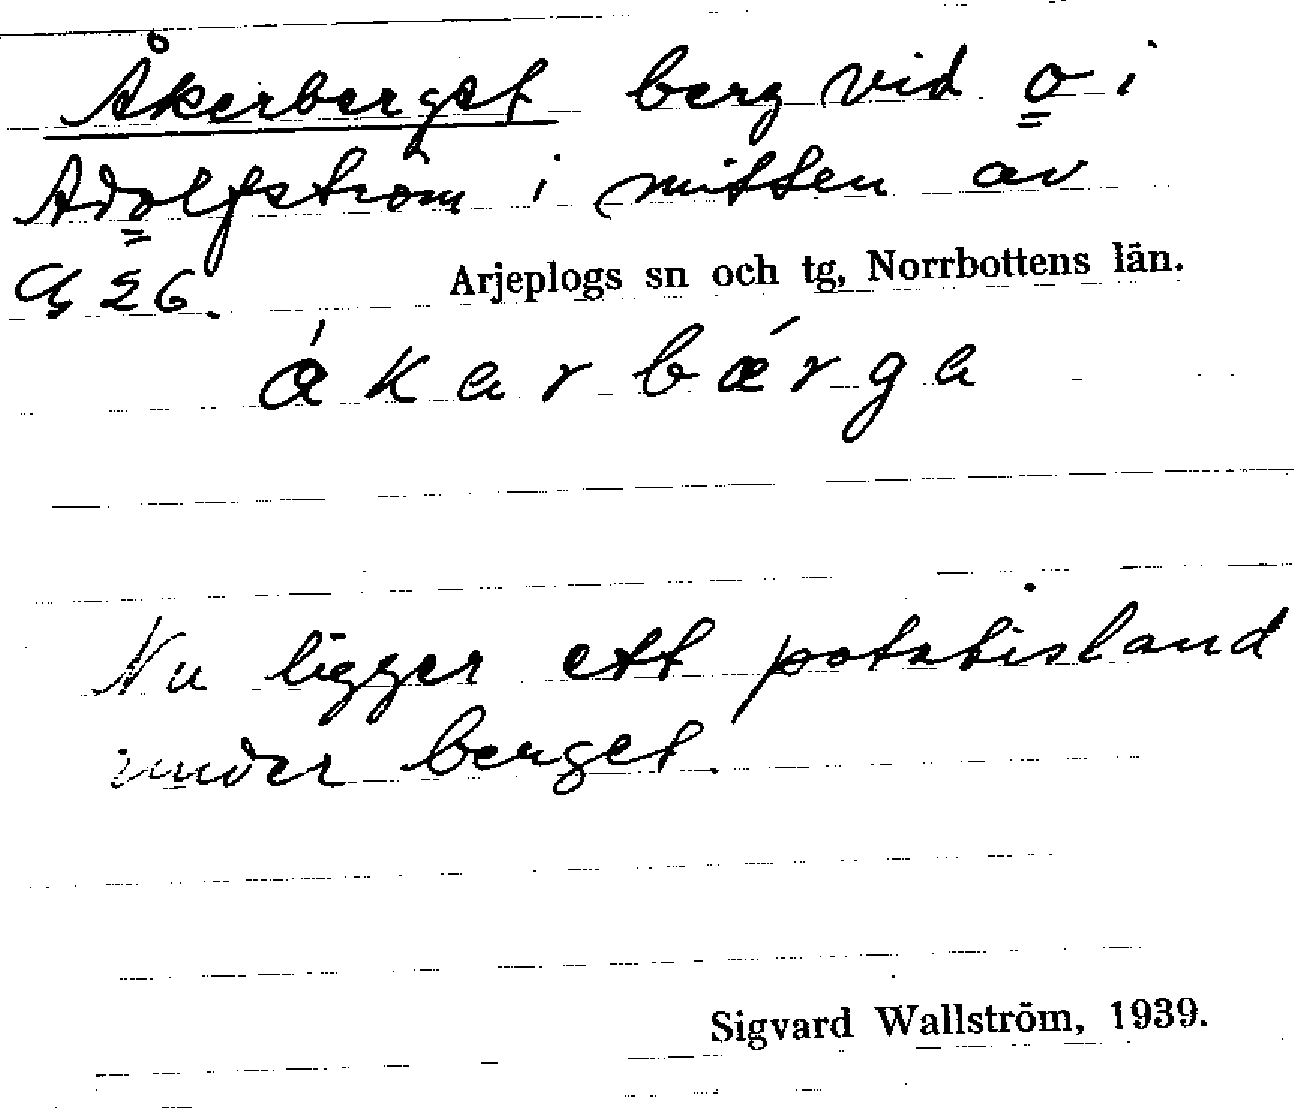 Åkerberget berg vid o i
Adolfström i mitten av
G 26.
Arjeplogs sn och tg, Norrbottens län.
ákarbǽrga
Nu ligger ett potatisland
under berget.
Sigvard Wallström, 1939.